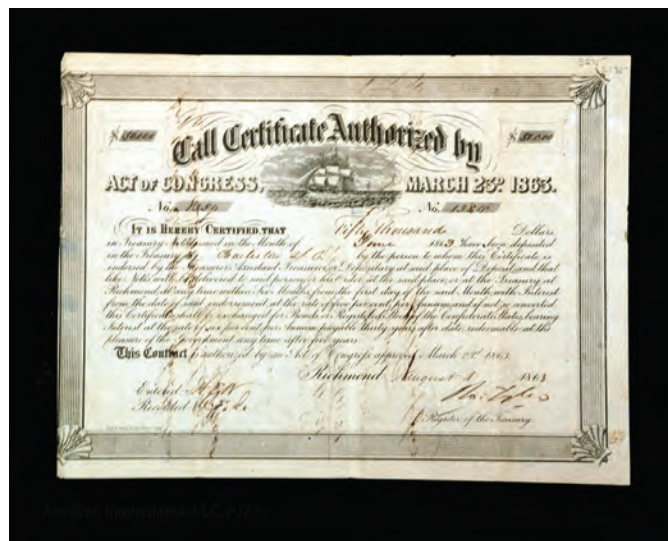 $ 50.000 $ 50.000
Call Certificate Authorized by
ACT OF CONGRESS, MARCH 23D. 1863.
No. No.
IT IS HEREBY CERTIFIED, THAT Fifty Thousand Dollars
in Treasury Notes issued in the Month of June 1863 have been deposited
in the Treasury at Charleston S. C. by the person to whom this Certificate is
endorsed by the Treasurer, Assistant Treasurer, or Depositary at said place of Deposit, and that
like Notes will be delivered to said person or his order, at the said place, or at the Treasury at
Richmond, at any time within Six Months from the first day of the said Month, with Interest
from the date of said endorsement at the rate of five per cent. per Annum, and if not so converted
this Certificate shall be exchanged for Bonds or Registered Stock of the Confederate States, bearing
Interest at the rate of six per cent. per Annum, payable thirty years after date, redeemable at the
pleasure of the Government any time after five years.
This Contract is authorized by an Act of Congress approved March 23d 1863.
Richmond August 1863
Entered
Recorded
Register of the Treasury.
Archives International LLC 2020